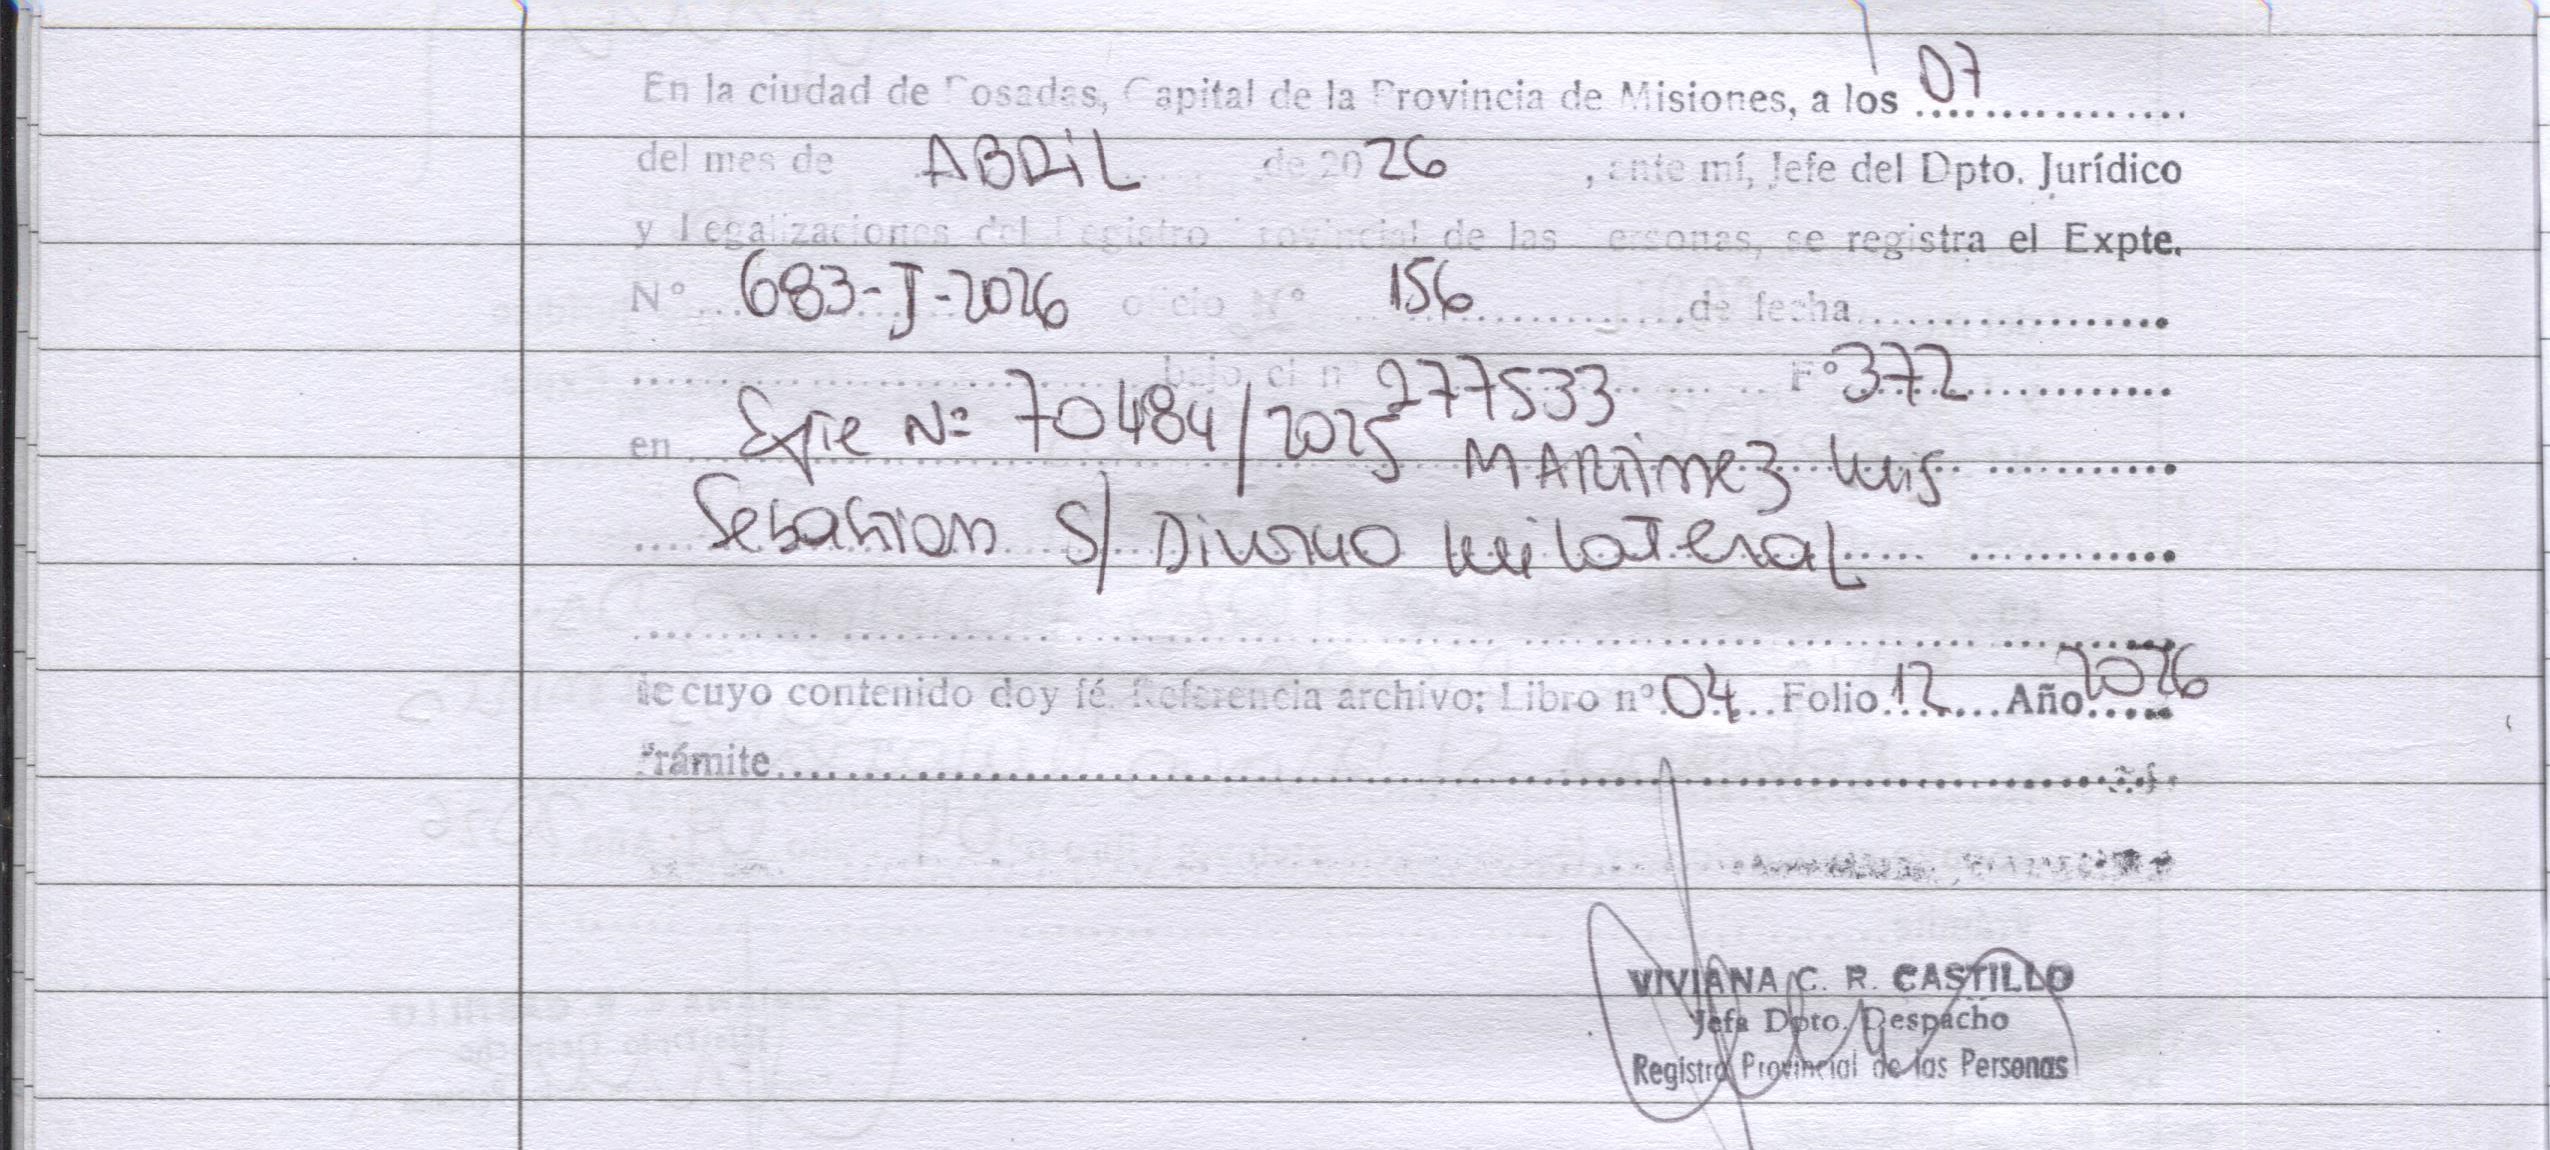 En la ciudad de Posadas, Capital de la Provincia de Misiones, a los 07
del mes de ABRiL de 2026, ante mí, Jefe del Dpto. Jurídico
y Legalizaciones del Registro Provincial de las Personas, se registra el Expte.
N° 683-J-2026 oficio N° 156 de fecha
bajo el n° 277533 F° 372
en Expte Nº 70484/2025 MARTiNEZ Luis
Sebastian S/ Divorcio unilateral
de cuyo contenido doy fé. Referencia archivo: Libro n° 04 Folio 12 Año 2026
Trámite
VIVIANA C. R. CASTILLO
Jefa Dpto. Despacho
Registro Provincial de las Personas